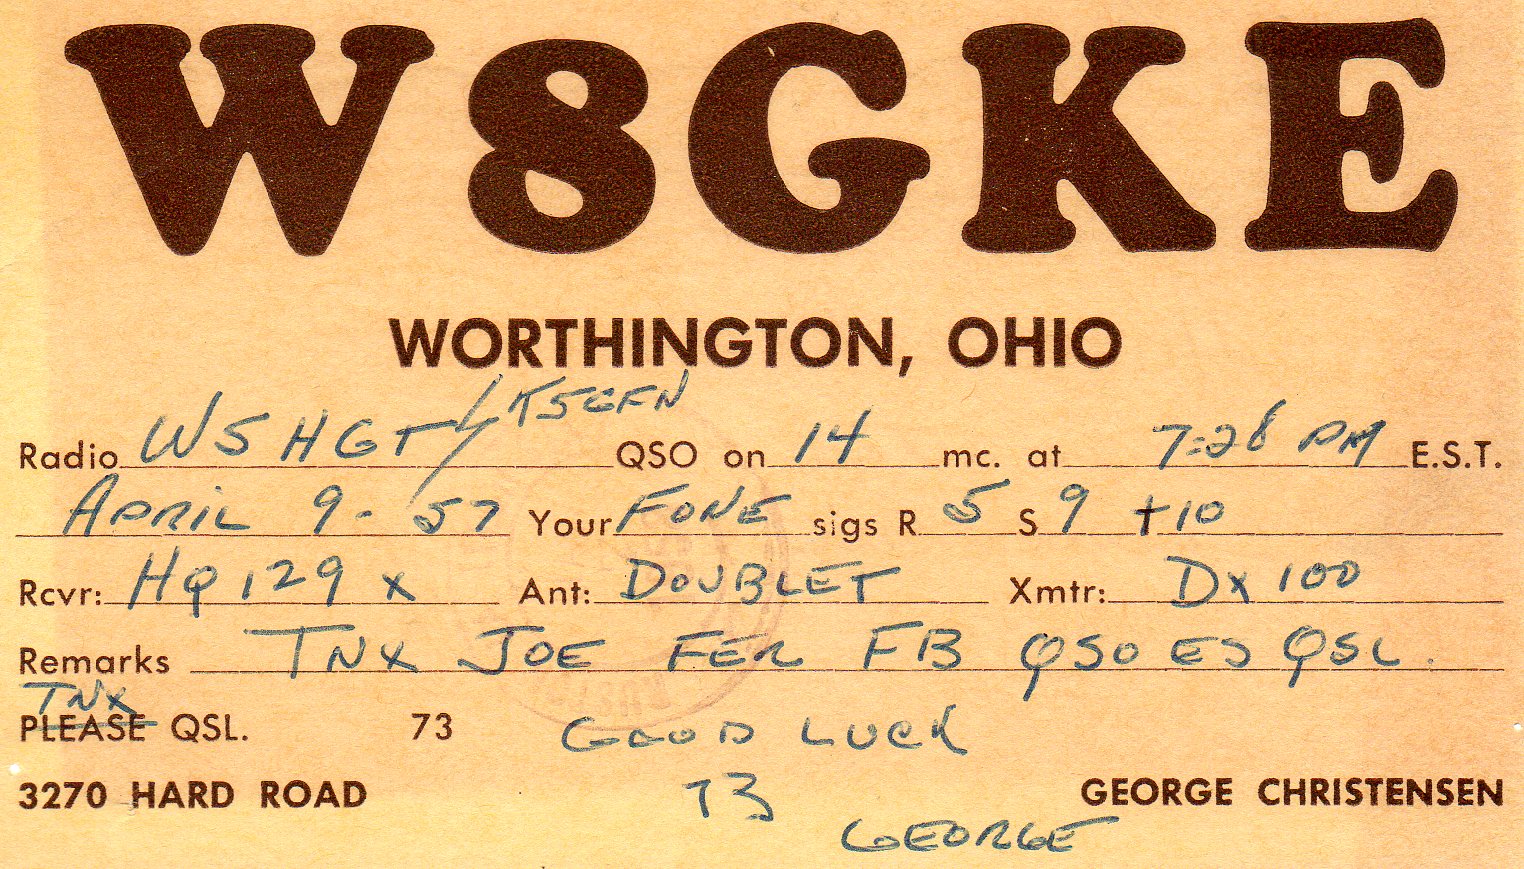 W8GKE
WORTHINGTON, OHIO
Radio W5HGT/K5GFN QSO on 14 mc. at 7:28 PM E.S.T.
APRIL 9-57 Your FONE sigs R 5 S 9 +10
Rcvr: HQ 129 X Ant: DOUBLET Xmtr: DX 100
Remarks TNX JOE FER FB QSO ES QSL.
TNX
PLEASE QSL. 73 GOOD LUCK
3270 HARD ROAD 73 GEORGE CHRISTENSEN
GEORGE